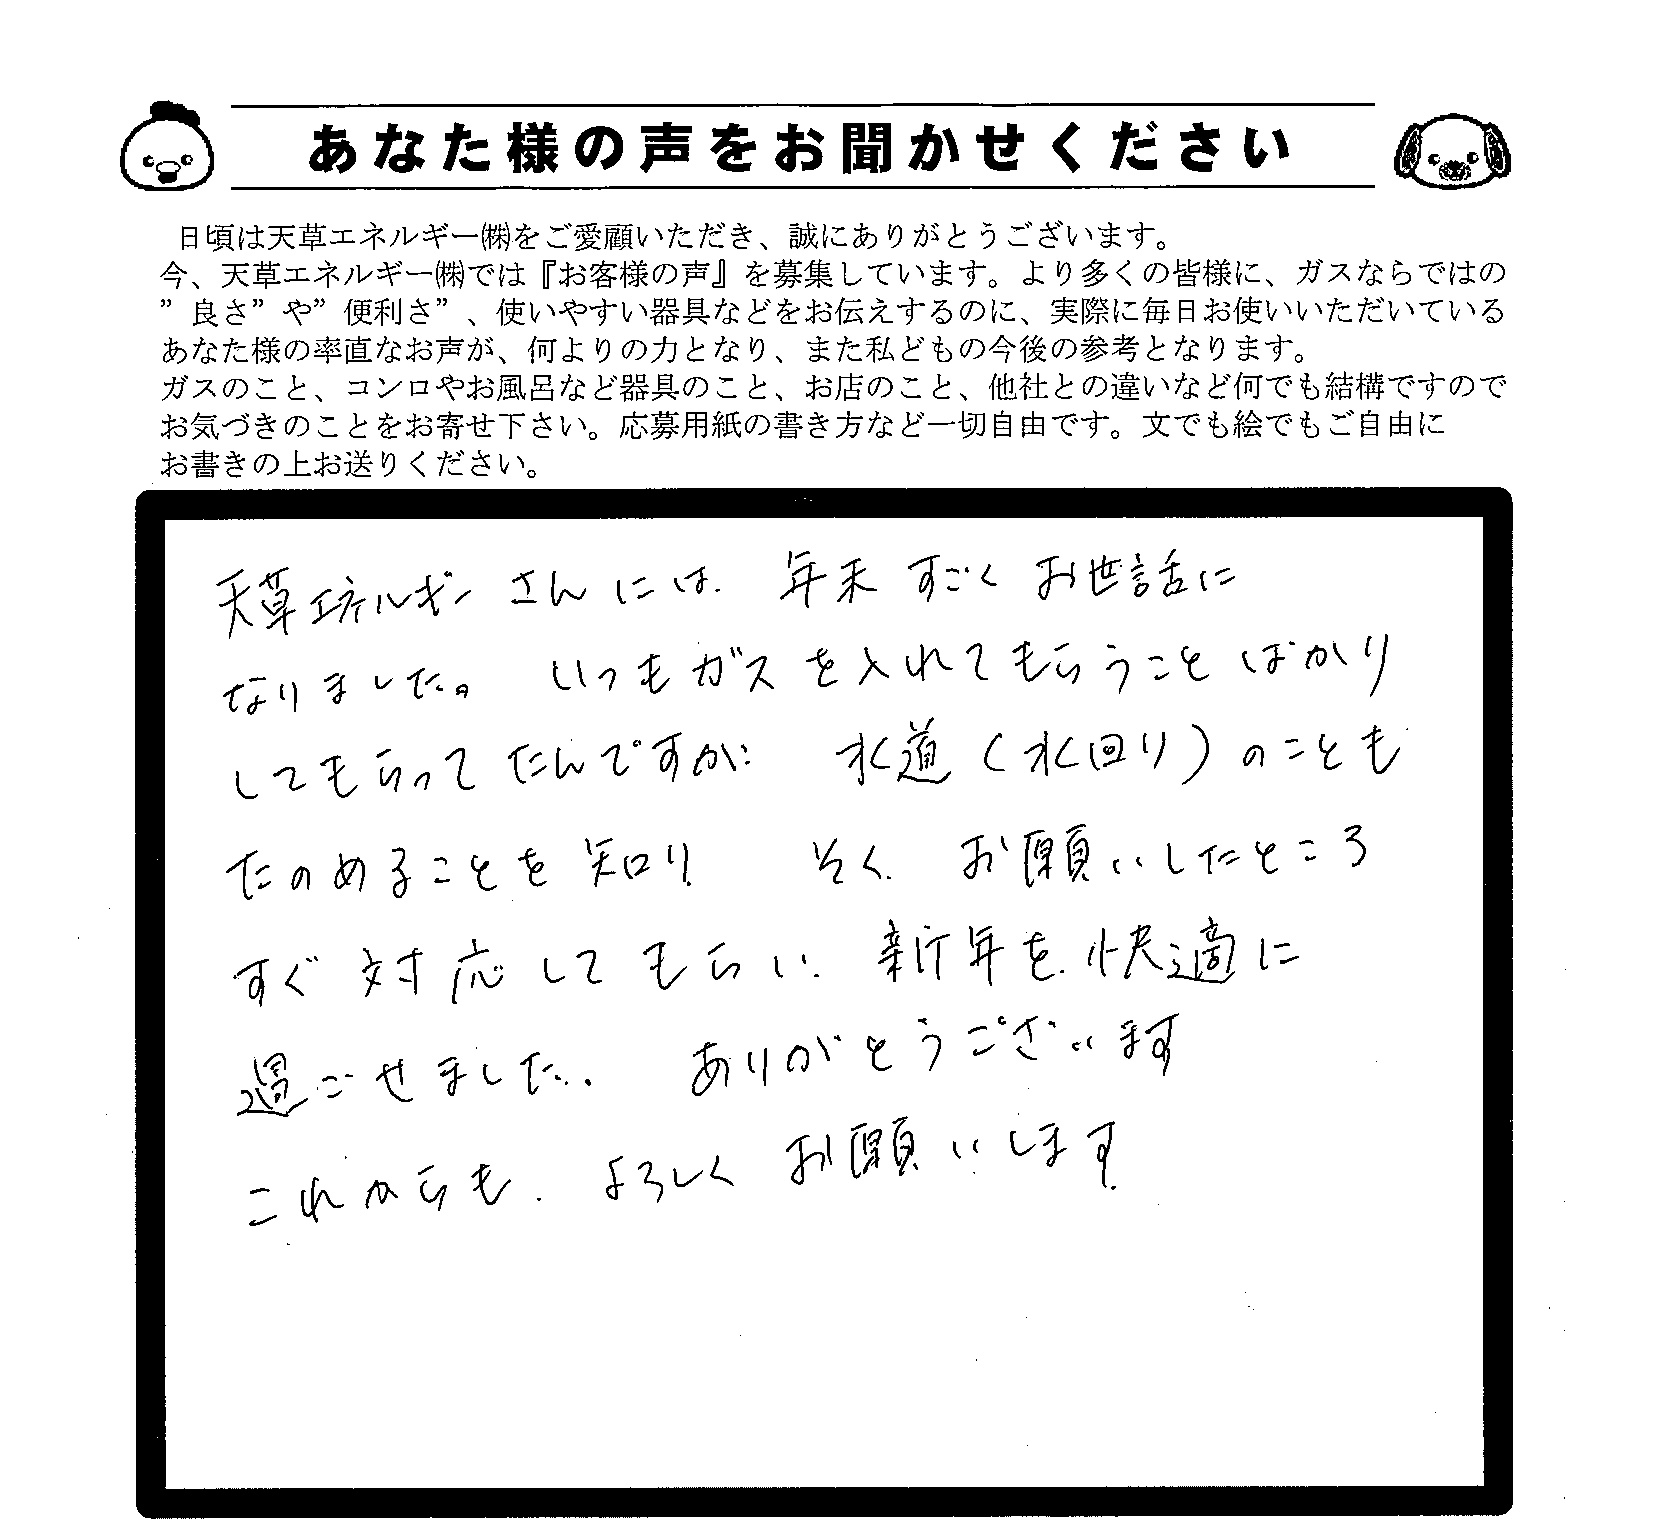 あなた様の声をお聞かせください
日頃は天草エネルギー㈱をご愛顧いただき、誠にありがとうございます。
今、天草エネルギー㈱では『お客様の声』を募集しています。より多くの皆様に、ガスならではの
”良さ”や”便利さ”、使いやすい器具などをお伝えするのに、実際に毎日お使いいただいている
あなた様の率直なお声が、何よりの力となり、また私どもの今後の参考となります。
ガスのこと、コンロやお風呂など器具のこと、お店のこと、他社との違いなど何でも結構ですので
お気づきのことをお寄せ下さい。応募用紙の書き方など一切自由です。文でも絵でもご自由に
お書きの上お送りください。
天草エネルギーさんには、年末すごくお世話に
なりました。いつもガスを入れてもらうことばかり
してもらってたんですが、水道(水回り)のことも
たのめることを知り、そく、お願いしたところ
すぐ対応してもらい、新年を快適に
過ごせました。ありがとうございます
これからも、よろしくお願いします